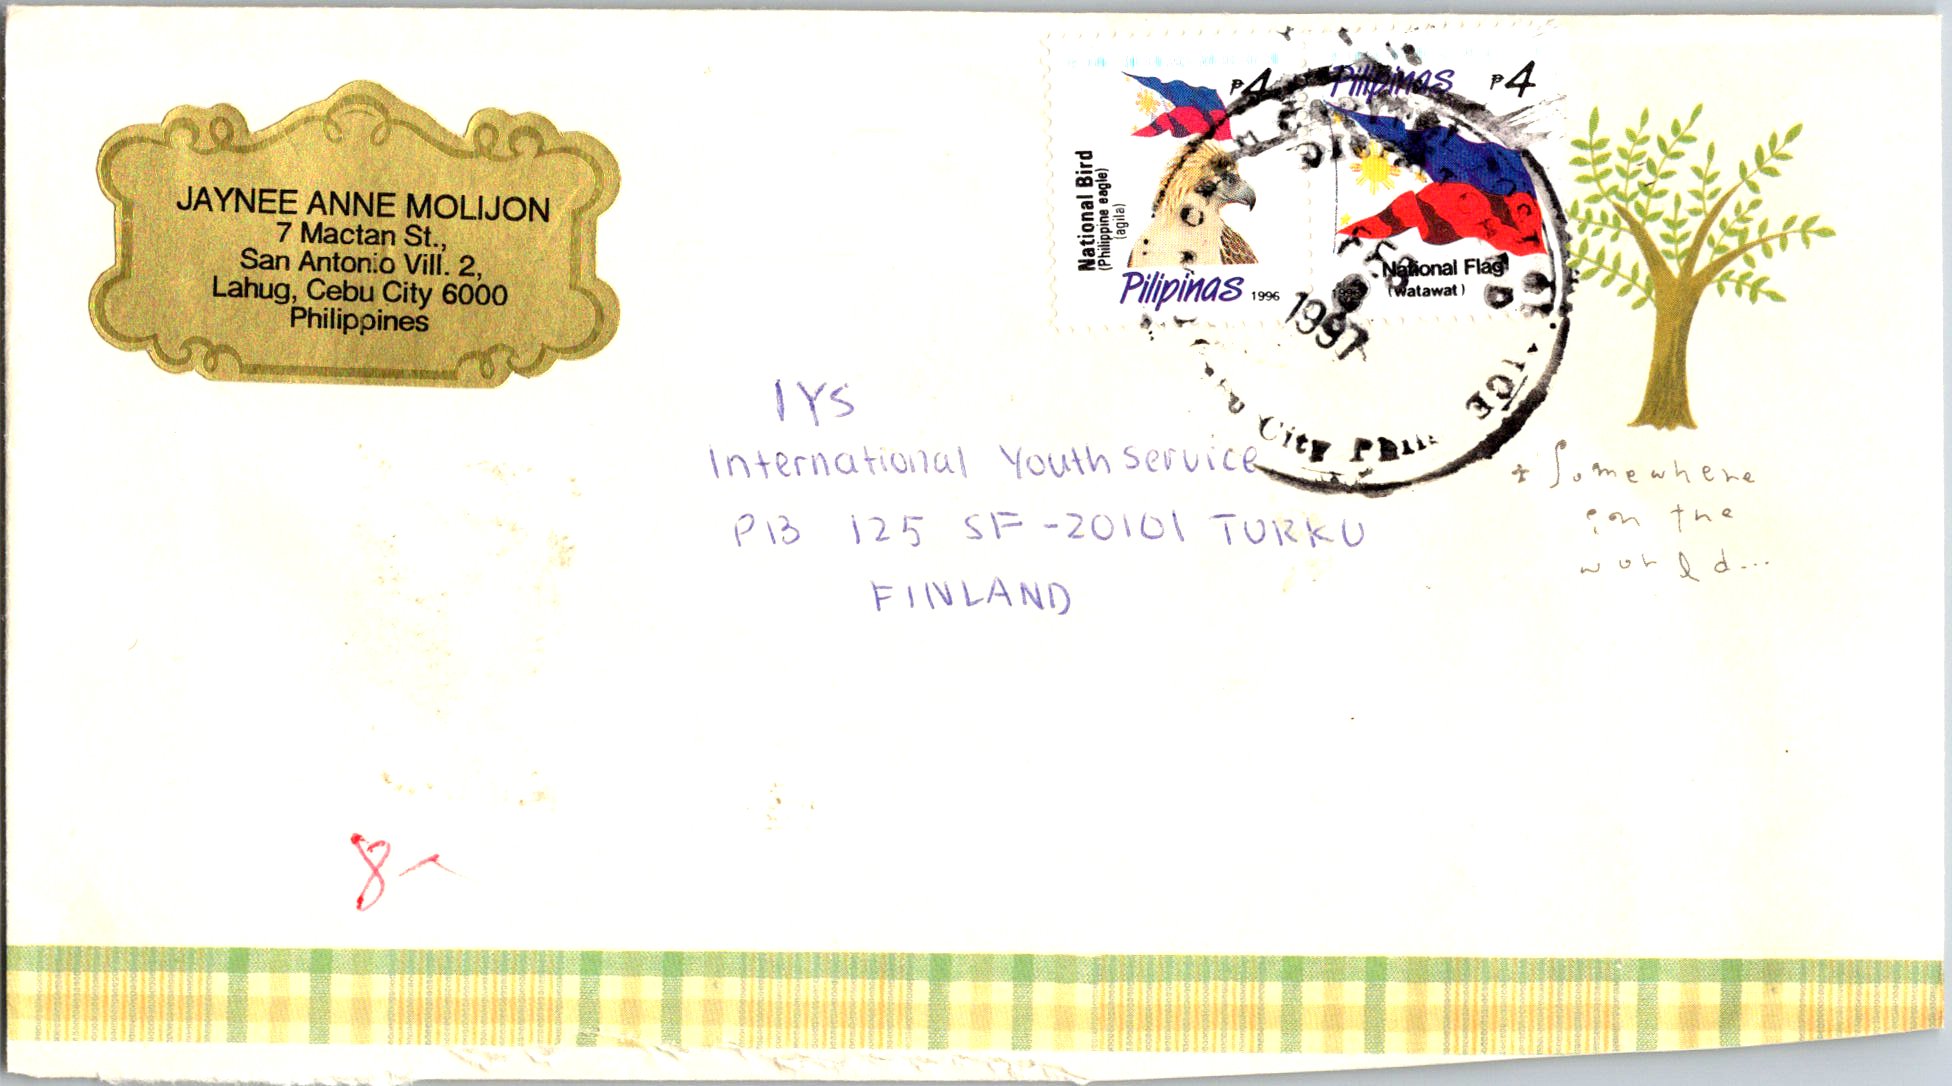 JAYNEE ANNE MOLIJON
7 Mactan St.,
San Antonio Vill. 2,
Lahug, Cebu City 6000
Philippines
₱4
National Bird
(Philippine eagle)
(agila)
Pilipinas 1996
Pilipinas ₱4
National Flag
(watawat)
1997
City Phil
IYS
International Youth Service
PB 125 SF-20101 TURKU
FINLAND
* Somewhere
in the
world...
8-